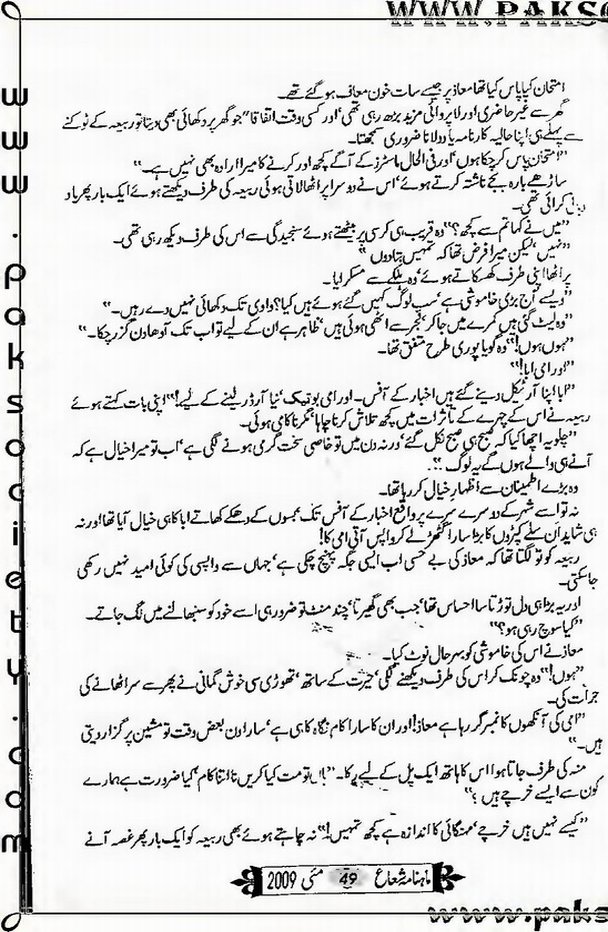 WWW.PAKSO
امتحان کیا پاس کیا تھا معاذ پر جیسے سات خون معاف ہو گئے تھے۔
گھر سے غیر حاضری اور لاپروائی مزید بڑھ رہی تھی، اور کسی وقت اتفاقا" جو گھر پر دکھائی بھی دیتا تو ربیعہ کے ٹوکنے
سے پہلے ہی اپنا حالیہ کارنامہ یاد دلانا ضروری سمجھتا۔
"امتحان پاس کر چکا ہوں، اور فی الحال ماسٹرز کے آگے کچھ اور کرنے کا میرا ارادہ بھی نہیں ہے۔"
ساڑھے بارہ بجے ناشتہ کرتے ہوئے، اس نے دوسرا پراٹھا لاتی ہوئی ربیعہ کی طرف دیکھتے ہوئے ایک بار پھر یاد
دہانی کرائی تھی۔
"میں نے کہا تم سے کچھ؟" وہ قریب ہی کرسی پر بیٹھتے ہوئے سنجیدگی سے اس کی طرف دیکھ رہی تھی۔
"نہیں، لیکن میرا فرض تھا کہ تمہیں بتا دوں"
پراٹھا اپنی طرف کھسکاتے ہوئے، وہ ہلکے سے مسکرایا۔
"ویسے آج بڑی خاموشی ہے، سب لوگ کہیں گئے ہوئے ہیں کیا؟ دادی تک دکھائی نہیں دے رہیں۔"
"وہ لیٹ گئی ہیں کمرے میں جا کر، فجر سے اٹھی ہوئی ہیں، ظاہر ہے ان کے لیے تو اب تک آدھا دن گزر چکا۔"
"ہوں ہوں!" وہ گویا پوری طرح متفق تھا۔
"اور امی ابا!"
"ابا اپنا آرٹیکل دینے گئے ہیں اخبار کے آفس۔ اور امی بوتیک، نیا آرڈر لینے کے لیے!" اپنی بات کہتے ہوئے
ربیعہ نے اس کے چہرے کے تاثرات میں کچھ تلاش کرنا چاہا، مگر ناکامی ہوئی۔
"چلو یہ اچھا کیا کہ صبح ہی صبح نکل گئے، ورنہ دن میں تو خاصی سخت گرمی ہونے لگی ہے، اب تو میرا خیال ہے کہ
آنے ہی والے ہوں گے یہ لوگ"
وہ بڑے اطمینان سے اظہار خیال کر رہا تھا۔
نہ تو اسے شہر کے دوسرے سرے پر واقع اخبار کے آفس تک بسوں کے دھکے کھاتے ابا کا ہی خیال آیا تھا! اور نہ
ہی شاید ان سلے کپڑوں کا بڑا سارا گٹھر لے کر واپس آتی امی کا!
ربیعہ کو تو لگتا تھا کہ معاذ کی بے حسی اب ایسی جگہ پہنچ چکی ہے، جہاں سے واپسی کی کوئی امید نہیں رکھی
جا سکتی۔
اور یہ بڑا ہی دل توڑتا سا احساس تھا، جب بھی گھیرتا، چند منٹ تو ضرور ہی اسے خود کو سنبھالنے میں لگ جاتے۔
"کیا سوچ رہی ہو؟"
معاذ نے اس کی خاموشی کو بہرحال نوٹ کیا۔
"ہوں!" وہ چونک کر اس کی طرف دیکھنے لگی، حیرت کے ساتھ، تھوڑی سی خوش گمانی نے پھر سے سر اٹھانے کی
جرأت کی۔
"امی کی آنکھوں کا نمبر گر رہا ہے معاذ! اور ان کا سارا کام نگاہ کا ہی ہے، سارا دن بعض وقت تو مشین پر گزار دیتی
ہیں۔"
منہ کی طرف جاتا ہوا اس کا ہاتھ ایک پل کے لیے رکا۔ "ہاں تو مت کیا کریں نا اتنا کام، کیا ضرورت ہے ہمارے
کون سے ایسے خرچے ہیں؟"
"کیسے نہیں ہیں خرچے، مہنگائی کا اندازہ ہے کچھ تمہیں!" نہ چاہتے ہوئے بھی ربیعہ کو ایک بار پھر غصہ آنے
ماہنامہ شعاع 49 مئی 2009
www.paksociety.com
www.paks